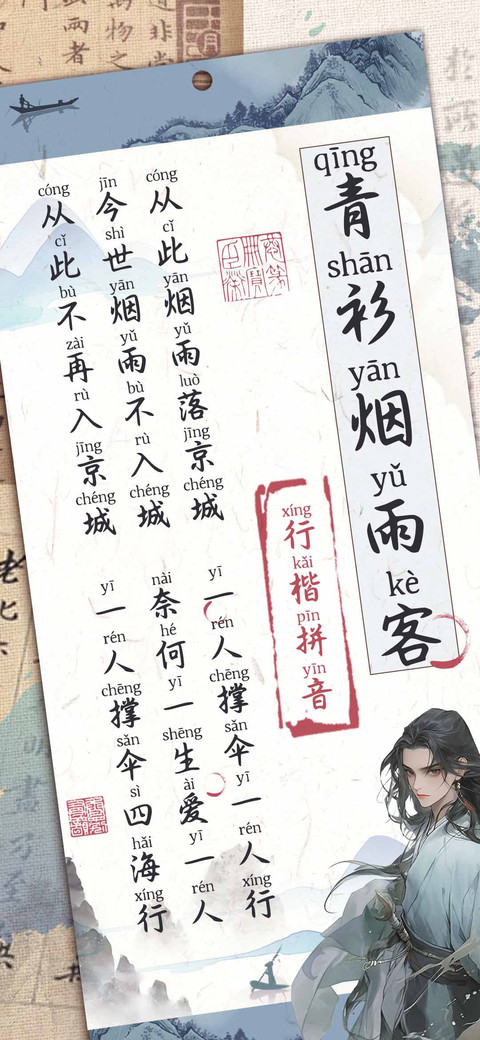 qīng shān yān yǔ kè
青衫烟雨客
xíng kǎi pīn yīn
行楷拼音
cóng cǐ yān yǔ luò jīng chéng
从此烟雨落京城
yī rén chēng sǎn yī rén xíng
一人撑伞一人行
jīn shì yān yǔ bù rù chéng
今世烟雨不入城
nài hé yī shēng ài yī rén
奈何一生爱一人
cóng cǐ bù zài rù jīng chéng
从此不再入京城
yī rén chēng sǎn sì hǎi xíng
一人撑伞四海行